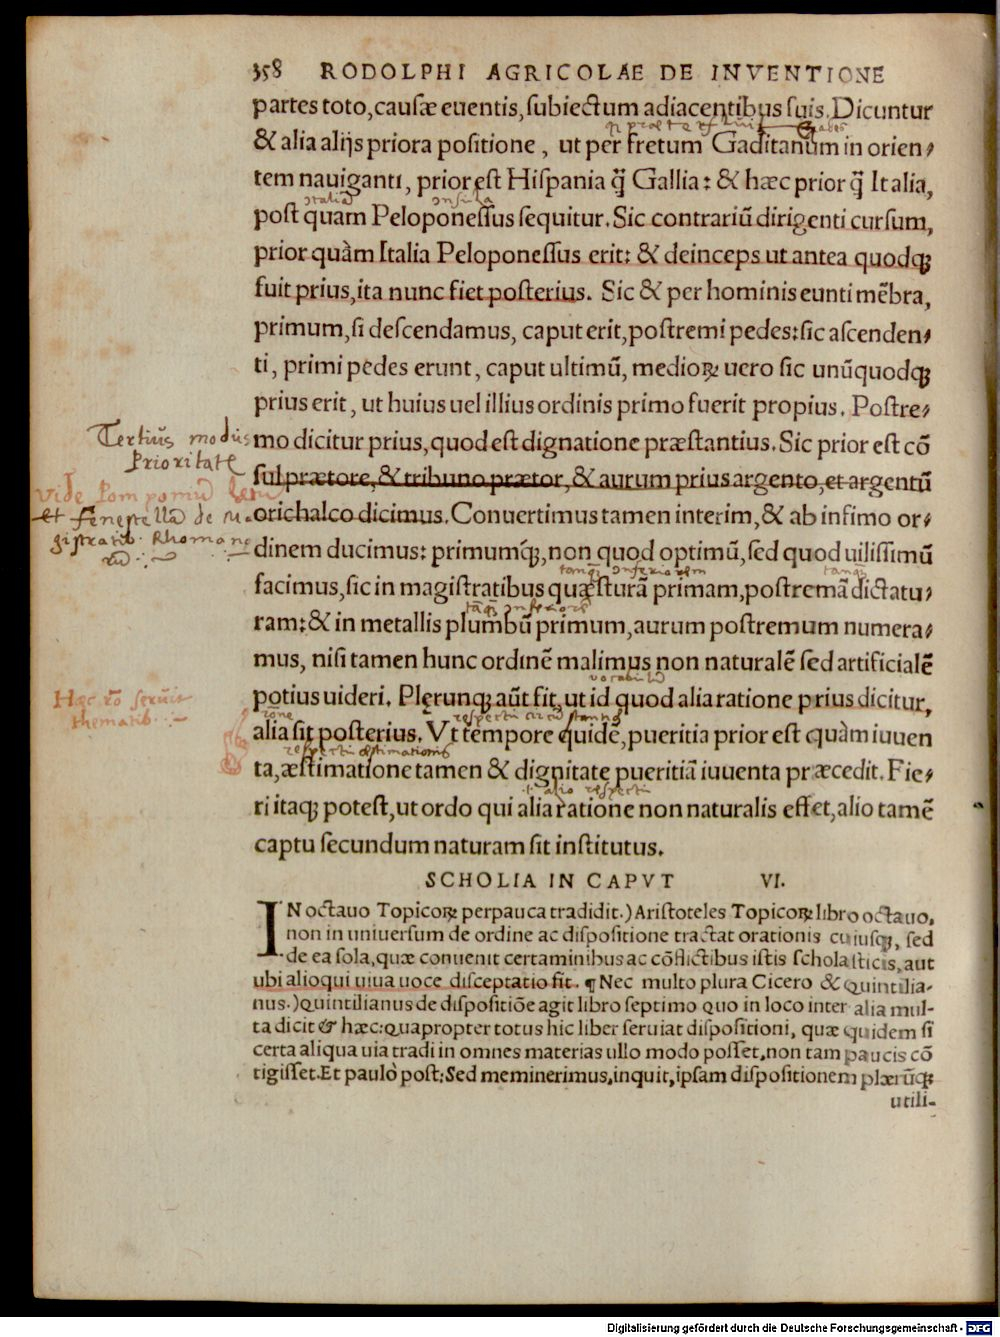 358 RODOLPHI AGRICOLAE DE INVENTIONE
partes toto, causæ euentis, subiectum adiacentibus suis. Dicuntur
& alia alijs priora positione, ut per fretum Gaditanum in orien⸗
tem nauiganti, prior est Hispania q̃ Gallia: & hæc prior q̃ Italia,
Italia insula
post quam Peloponessus sequitur. Sic contrariũ dirigenti cursum,
prior quàm Italia Peloponessus erit: & deinceps ut antea quodqꝫ
fuit prius, ita nunc fiet posterius. Sic & per hominis eunti mẽbra,
primum, si descendamus, caput erit, postremi pedes: sic ascenden⸗
ti, primi pedes erunt, caput ultimũ, medioꝝ uero sic unũquodqꝫ
prius erit, ut huius uel illius ordinis primo fuerit propius. Postre⸗
Tertius modus
Prioritatẽ
mo dicitur prius, quod est dignatione præstantius. Sic prior est cõ
sul prætore, & tribuno prætor, & aurum prius argento, et argentũ
Vide Pomponiũ
et fenestellã de Ma
gistratib. Rhomano
rũ
orichalco dicimus. Conuertimus tamen interim, & ab infimo or⸗
dinem ducimus: primumq́, non quod optimũ, sed quod uilissimũ
tanq̃ inferiorem tanq̃
facimus, sic in magistratibus quæsturã primam, postremã dictatu⸗
ram: & in metallis plumbũ primum, aurum postremum numera⸗
mus, nisi tamen hunc ordinẽ malimus non naturalẽ sed artificialẽ
Hæc rõ seruit
thematib.
potius uideri. Plerunqꝫ aũt fit, ut id quod alia ratione prius dicitur,
alia sit posterius. Vt tempore quidẽ, pueritia prior est quàm iuuen
respectu æstimationis
ta, æstimatione tamen & dignitate pueritiã iuuenta præcedit. Fie⸗
alio respectu
ri itaqꝫ potest, ut ordo qui alia ratione non naturalis esset, alio tamẽ
captu secundum naturam sit institutus.
SCHOLIA IN CAPVT VI.
IN octauo Topicoꝝ perpauca tradidit.) Aristoteles Topicoꝝ libro octauo,
non in uniuersum de ordine ac dispositione tractat orationis cuiusqꝫ, sed
de ea sola, quæ conuenit certaminibus ac cõflictibus istis scholasticis, aut
ubi alioqui uiua uoce disceptatio fit. ¶ Nec multo plura Cicero & Quintilia-
nus.) Quintilianus de dispositiõe agit libro septimo quo in loco inter alia mul-
ta dicit & hæc: Quapropter totus hic liber seruiat dispositioni, quæ quidem si
certa aliqua uia tradi in omnes materias ullo modo posset, non tam paucis cõ
tigisset. Et paulò post: Sed meminerimus, inquit, ipsam dispositionem plærũqꝫ
utili-
Digitalisierung gefördert durch die Deutsche Forschungsgemeinschaft - DFG